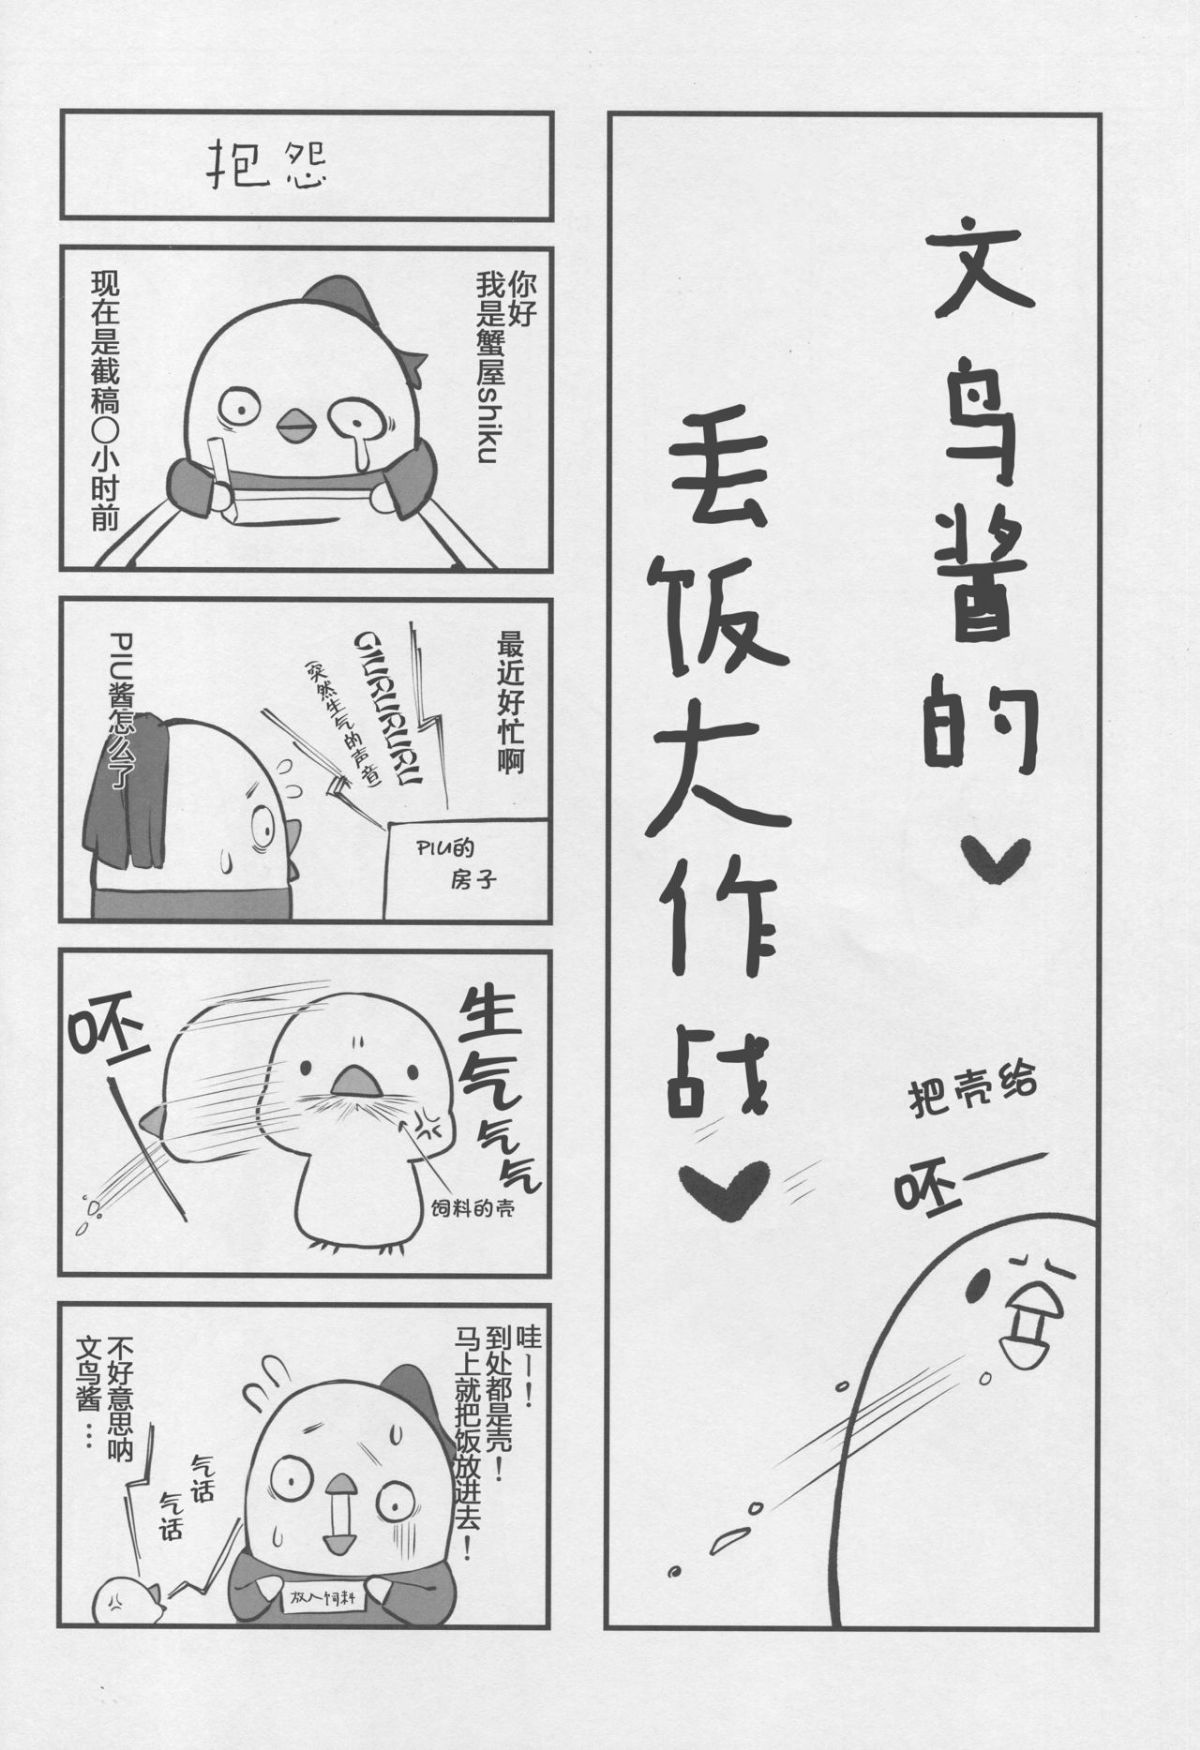 文鸟酱的
丢饭大作战
把壳给
呸一
抱怨
你好
我是蟹屋shiku
现在是截稿〇小时前
最近好忙啊
GIURURURU
(突然生气的声音)
PIU的
房子
PIU酱怎么了
生气气气
饲料的壳
呸一
哇一！
到处都是壳！
马上就把饭放进去！
放入饲料
气话
气话
不好意思呐
文鸟酱…